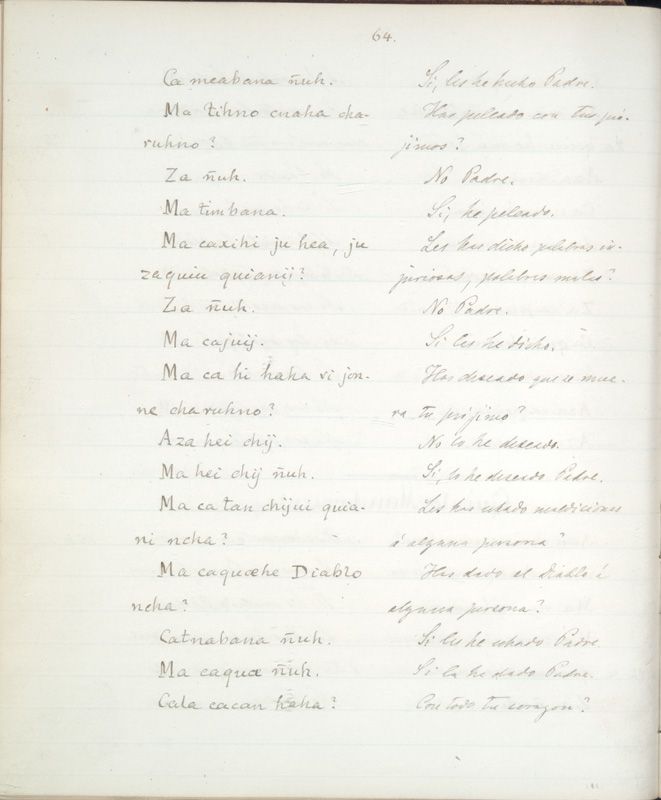 64.
Ca meabana ñuh. Si, les he hecho Padre.
Ma tihno cuaha cha- Has peleado con tus pró-
ruhno? jimos?
Za ñuh. No Padre.
Ma timbana. Si, he peleado.
Ma caxihi ju hea, ju Les has dicho palabras in-
zaquiu quianij? juriosas, palabras malas?
Za ñuh. No Padre.
Ma cajuij. Si les he dicho.
Ma ca hi haha vi jon- Has deseado que se mue-
ne charuhno? ra tu prójimo?
Aza hei chij. No lo he deseado.
Ma hei chij ñuh. Si, lo he deseado Padre.
Ma ca tan chijui quia- Les has echado maldiciones
ni ncha? á alguna persona?
Ma caquæhe Diablo Has dado al Diablo á
ncha? alguna persona?
Catnabana ñuh. Si les he echado Padre.
Ma caquæ ñuh. Si la he dado Padre.
Cala cacan haha? Con todo tu corazon?